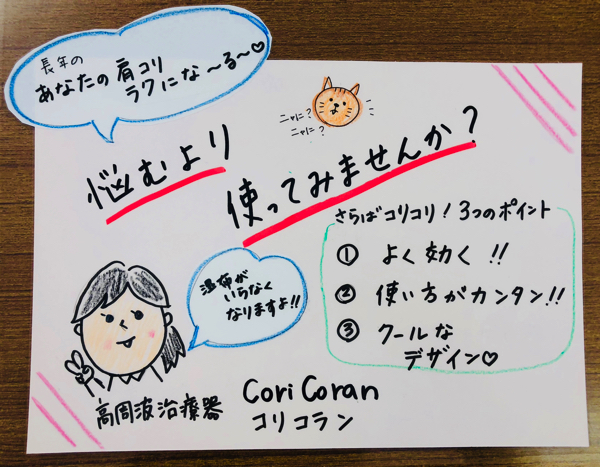 長年の
あなたの肩コリ
ラクにな～る～♡
ニャに？
ニャに？
悩むより
使ってみませんか？
さらばコリコリ！3つのポイント
① よく効く!!
② 使い方がカンタン!!
③ クールな
デザイン♡
湿布が
いらなく
なりますよ!!
高周波治療器 CoriCoran
コリコラン